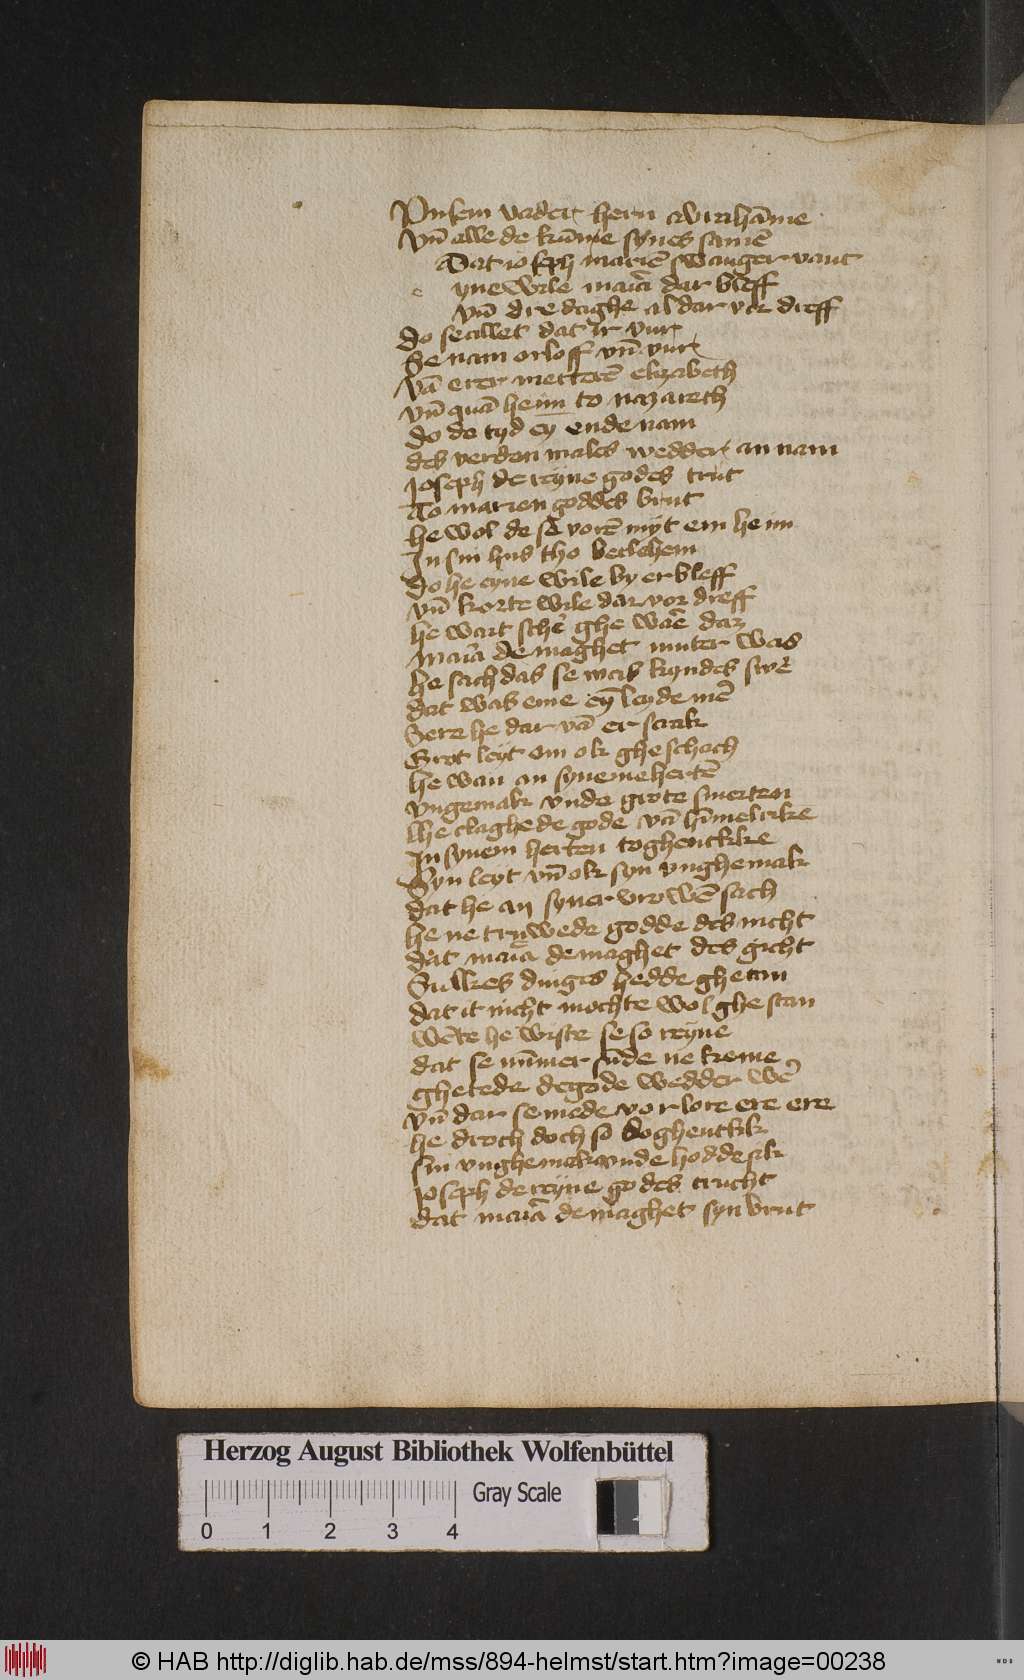 Vnsem vader hern abrahāme
Vn̄ alle de kūme synes samē
Dat ioseph mariē swanger vant
yne wile maria dar bleff
vn̄ dre daghe al dar vor dreff
do se allet dat ir vur
Se nam orloff vn̄ vur
vā erer metteren elyzabeth
vn̄ quā heim to nazareth
do de tyd ey ende nam
des verden males wedder an nam
Joseph de reyne godes trut
To marien goddes brut
he wol de sē vorē myt em heim
In sin hus tho betlehem
do he eyne wile by er bleff
vn̄ korte wile dar vor dreff
he wart schē ghe waē daz
maria de maghet muter was
he sach das se was kyndes swē
dat was eme eȳ leyde mē
Sere he dar vā er scrak
Grot leyt om ok ghe schach
he wan an syneme hertē
vngemak vnde grote smerten
he claghede gode vā hīmelrike
In synem herten toghentkike
Syn leyt vn̄ ok syn vnghemak
dat he an syner vrowē sach
he ne truwede godde des nicht
dat maria de maghet des gicht
Sulkes dinges hedde ghetan
dat it nicht mochte wol ghestan
wēte he wiste se so reyne
dat se nūmer sūde ne kreme
ghetede degode wedder wē
vn̄ dar se mede vor lore ere ere
he droch doch so doghentkik
sin vnghemak vnde hodde sik
Joseph de reyne godes trucht
dat maria de maghet syn brut
Herzog August Bibliothek Wolfenbüttel
Gray Scale
0 1 2 3 4
© HAB http://diglib.hab.de/mss/894-helmst/start.htm?image=00238